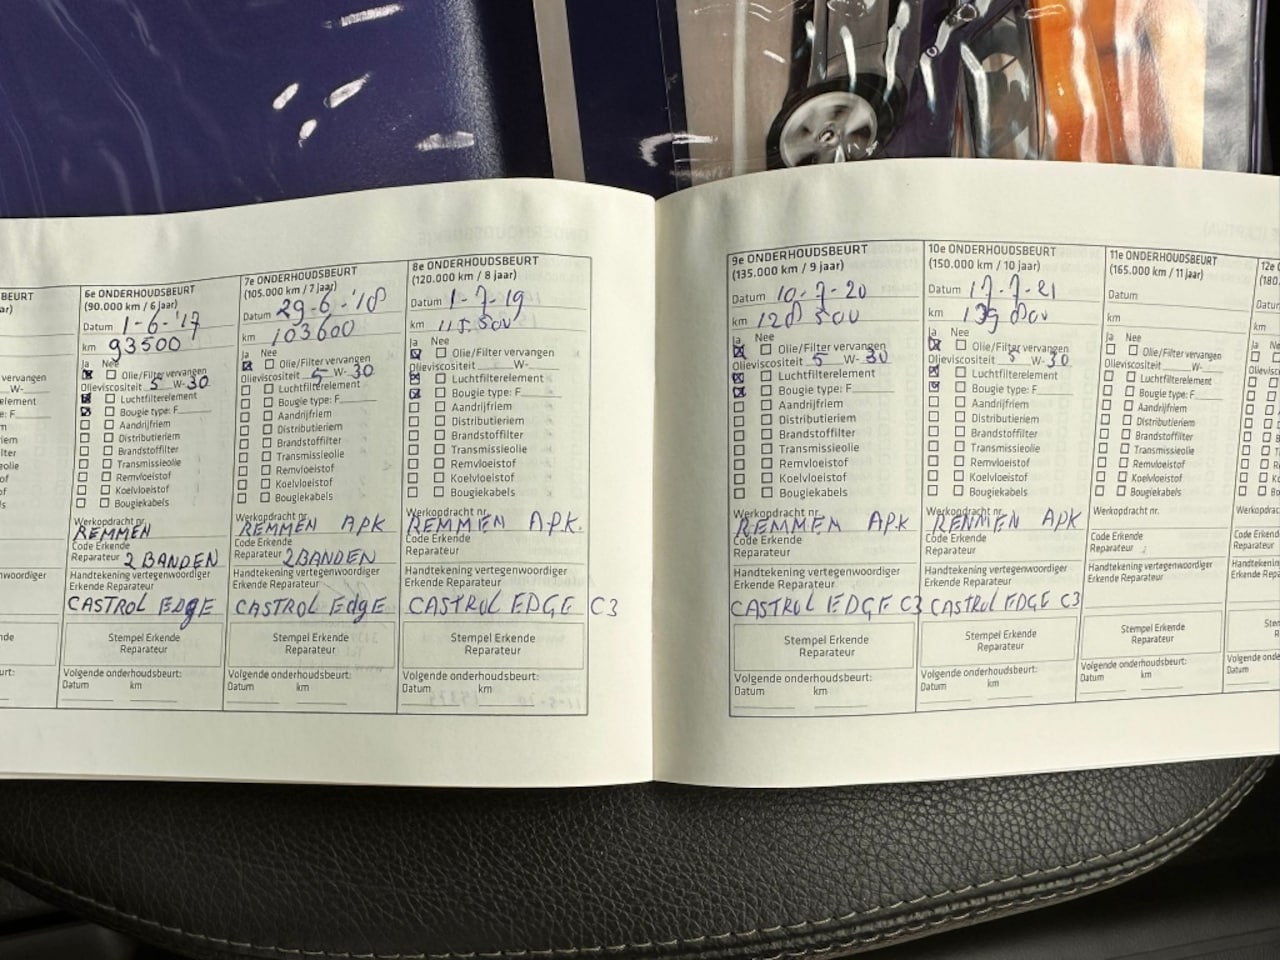 BEURT
ar)
n vervangen
W-
element
pe: F
m
iem
lter
eolie
of
of
s
nwoordiger
nde
urt:
6e ONDERHOUDSBEURT
(90.000 km / 6 jaar)
Datum 1-6-'17
km 93500
Ja Nee
Olie/Filter vervangen
Olieviscositeit 5 W- 30
Luchtfilterelement
Bougie type: F
Aandrijfriem
Distributieriem
Brandstoffilter
Transmissieolie
Remvloeistof
Koelvloeistof
Bougiekabels
Werkopdracht nr.
REMMEN
Code Erkende
Reparateur 2 BANDEN
Handtekening vertegenwoordiger
Erkende Reparateur
CASTROL EDGE
Stempel Erkende
Reparateur
Volgende onderhoudsbeurt:
Datum km
7e ONDERHOUDSBEURT
(105.000 km / 7 jaar)
Datum 29-6-'18
km 103600
Ja Nee
Olie/Filter vervangen
Olieviscositeit 5 W- 30
Luchtfilterelement
Bougie type: F
Aandrijfriem
Distributieriem
Brandstoffilter
Transmissieolie
Remvloeistof
Koelvloeistof
Bougiekabels
Werkopdracht nr.
REMMEN APK
Code Erkende
Reparateur 2BANDEN
Handtekening vertegenwoordiger
Erkende Reparateur
CASTROL EdgE
Stempel Erkende
Reparateur
Volgende onderhoudsbeurt:
Datum km
8e ONDERHOUDSBEURT
(120.000 km / 8 jaar)
Datum 1-7-19
km 115.500
Ja Nee
Olie/Filter vervangen
Olieviscositeit W-
Luchtfilterelement
Bougie type: F
Aandrijfriem
Distributieriem
Brandstoffilter
Transmissieolie
Remvloeistof
Koelvloeistof
Bougiekabels
Werkopdracht nr.
REMMEN A.P.K.
Code Erkende
Reparateur
Handtekening vertegenwoordiger
Erkende Reparateur
CASTROL EDGE C3
Stempel Erkende
Reparateur
Volgende onderhoudsbeurt:
Datum km
9e ONDERHOUDSBEURT
(135.000 km / 9 jaar)
Datum 10-7-20
km 128 500
Ja Nee
Olie/Filter vervangen
Olieviscositeit 5 W- 30
Luchtfilterelement
Bougie type: F
Aandrijfriem
Distributieriem
Brandstoffilter
Transmissieolie
Remvloeistof
Koelvloeistof
Bougiekabels
Werkopdracht nr.
REMMEN APK
Code Erkende
Reparateur
Handtekening vertegenwoordiger
Erkende Reparateur
CASTROL EDGE C3
Stempel Erkende
Reparateur
Volgende onderhoudsbeurt:
Datum km
10e ONDERHOUDSBEURT
(150.000 km / 10 jaar)
Datum 17-7-21
km 139 800
Ja Nee
Olie/Filter vervangen
Olieviscositeit 5 W- 30
Luchtfilterelement
Bougie type: F
Aandrijfriem
Distributieriem
Brandstoffilter
Transmissieolie
Remvloeistof
Koelvloeistof
Bougiekabels
Werkopdracht nr.
REMMEN APK
Code Erkende
Reparateur
Handtekening vertegenwoordiger
Erkende Reparateur
CASTROL EDGE C3
Stempel Erkende
Reparateur
Volgende onderhoudsbeurt:
Datum km
11e ONDERHOUDSBEURT
(165.000 km / 11 jaar)
Datum
km
Ja Nee
Olie/Filter vervangen
Olieviscositeit W-
Luchtfilterelement
Bougie type: F
Aandrijfriem
Distributieriem
Brandstoffilter
Transmissieolie
Remvloeistof
Koelvloeistof
Bougiekabels
Werkopdracht nr.
Code Erkende
Reparateur
Handtekening vertegenwoordiger
Erkende Reparateur
Stempel Erkende
Reparateur
Volgende onderhoudsbeurt:
Datum km
12e O
(180.
Datum
km
Ja Ne
Werkopdrac
Code Erkend
Reparateur
Handtekening
Erkende Repa
Volgende onde
Datum